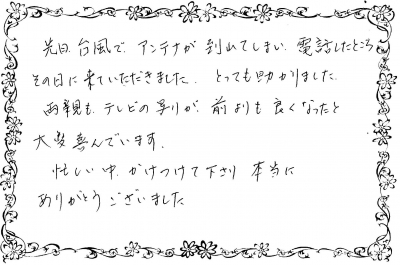 先日 台風で アンテナが 倒れてしまい 電話したところ
その日に来ていただきました。とっても助かりました。
両親も、テレビの写りが、前よりも良くなったと
大変喜んでいます。
忙しい中 かけつけて下さり 本当に
ありがとうございました